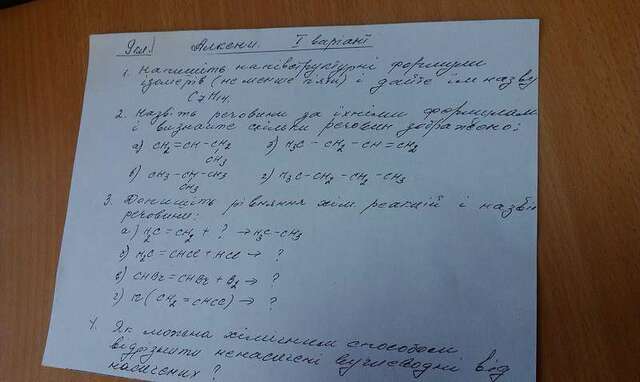 9 кл. Алкени. I варіант
1. Напишіть напівструктурні формули
ізомерів (не менше п'яти) і дайте їм назву
C7H14.
2. Назвіть речовини за їхніми формулами
і визнайте скільки речовин зображено:
а) CH2=CH-CH2 б) H3C-CH2-CH=CH2
CH3
в) CH3-CH-CH3 г) H3C-CH2-CH2-CH3
CH3
3. Допишіть рівняння хім реакцій і назви
речовини:
а) H2C=CH2 + ? → H3C-CH3
б) H2C=CHCl + HCl → ?
в) CHBr=CHBr + B2 → ?
г) n(CH2=CHCl) → ?
4. Як можена хімічним способом
відрізнити ненасичені вуглеводні від
насичених?